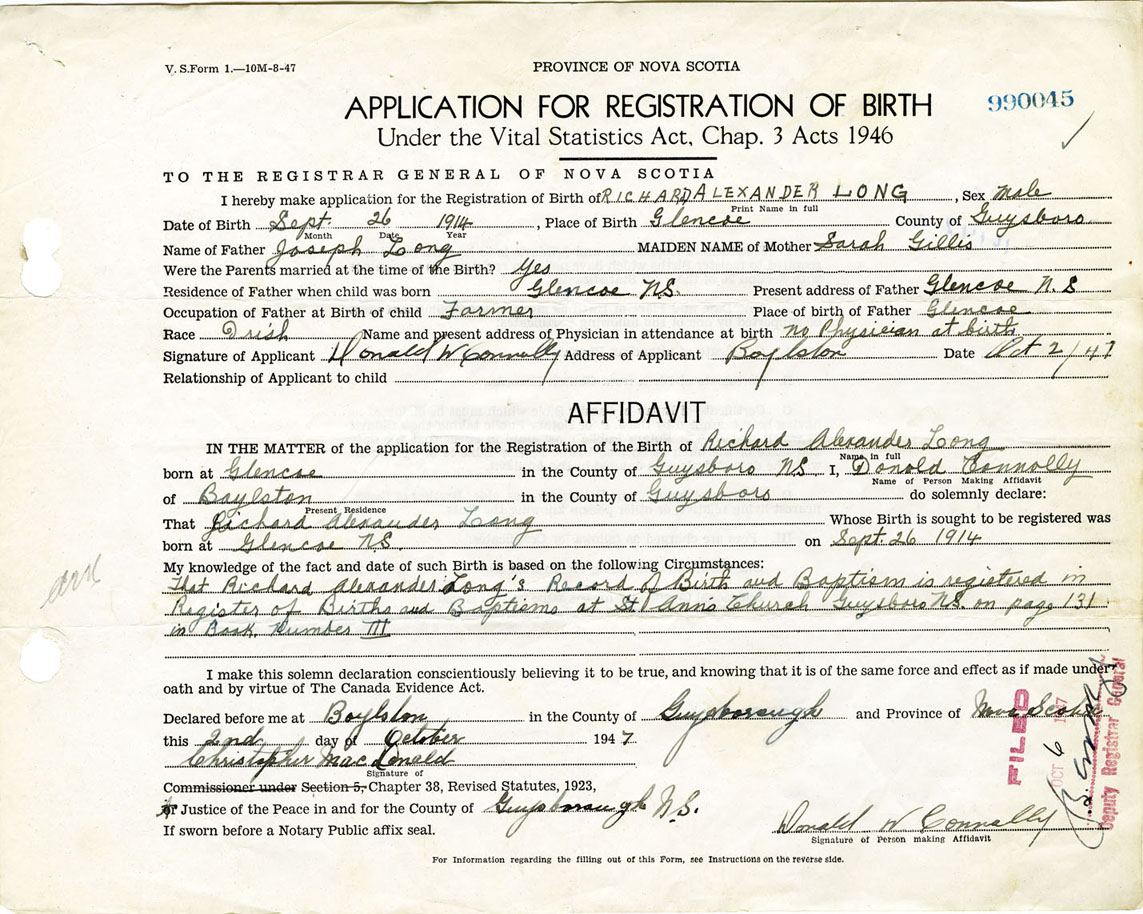 V. S. Form 1.—10M-8-47
PROVINCE OF NOVA SCOTIA
APPLICATION FOR REGISTRATION OF BIRTH
990045
Under the Vital Statistics Act, Chap. 3 Acts 1946
TO THE REGISTRAR GENERAL OF NOVA SCOTIA
I hereby make application for the Registration of Birth of RICHARD ALEXANDER LONG, Sex Male
Print Name in full
Date of Birth Sept. 26 1914, Place of Birth Glencoe County of Guysboro
Month Date Year
Name of Father Joseph Long MAIDEN NAME of Mother Sarah Gillis
Were the Parents married at the time of the Birth? Yes
Residence of Father when child was born Glencoe N.S. Present address of Father Glencoe N.S
Occupation of Father at Birth of child Farmer Place of birth of Father Glencoe
Race Irish Name and present address of Physician in attendance at birth no Physician at birth
Signature of Applicant Donald W Connolly Address of Applicant Boylston Date Oct 2/47
Relationship of Applicant to child
AFFIDAVIT
IN THE MATTER of the application for the Registration of the Birth of Richard Alexander Long
Name in full
born at Glencoe in the County of Guysboro NS I, Donald Connolly
Name of Person Making Affidavit
of Boylston in the County of Guysboro do solemnly declare:
Present Residence
That Richard Alexander Long Whose Birth is sought to be registered was
born at Glencoe N.S. on Sept. 26 1914
My knowledge of the fact and date of such Birth is based on the following Circumstances:
That Richard Alexander Long's Record of Birth and Baptism is registered in
Register of Births and Baptisms at St Ann's Church Guysboro N.S. on page 131
in Book Number III
I make this solemn declaration conscientiously believing it to be true, and knowing that it is of the same force and effect as if made under
oath and by virtue of The Canada Evidence Act.
Declared before me at Boylston in the County of Guysborough and Province of Nova Scotia
this 2nd day of October 1947.
Christopher MacDonald
Signature of
Commissioner under Section 5, Chapter 38, Revised Statutes, 1923,
or Justice of the Peace in and for the County of Guysborough N.S.
If sworn before a Notary Public affix seal.
Donald W Connolly
Signature of Person making Affidavit
FILED
OCT 6 1947
Deputy Registrar General
For Information regarding the filling out of this Form, see Instructions on the reverse side.